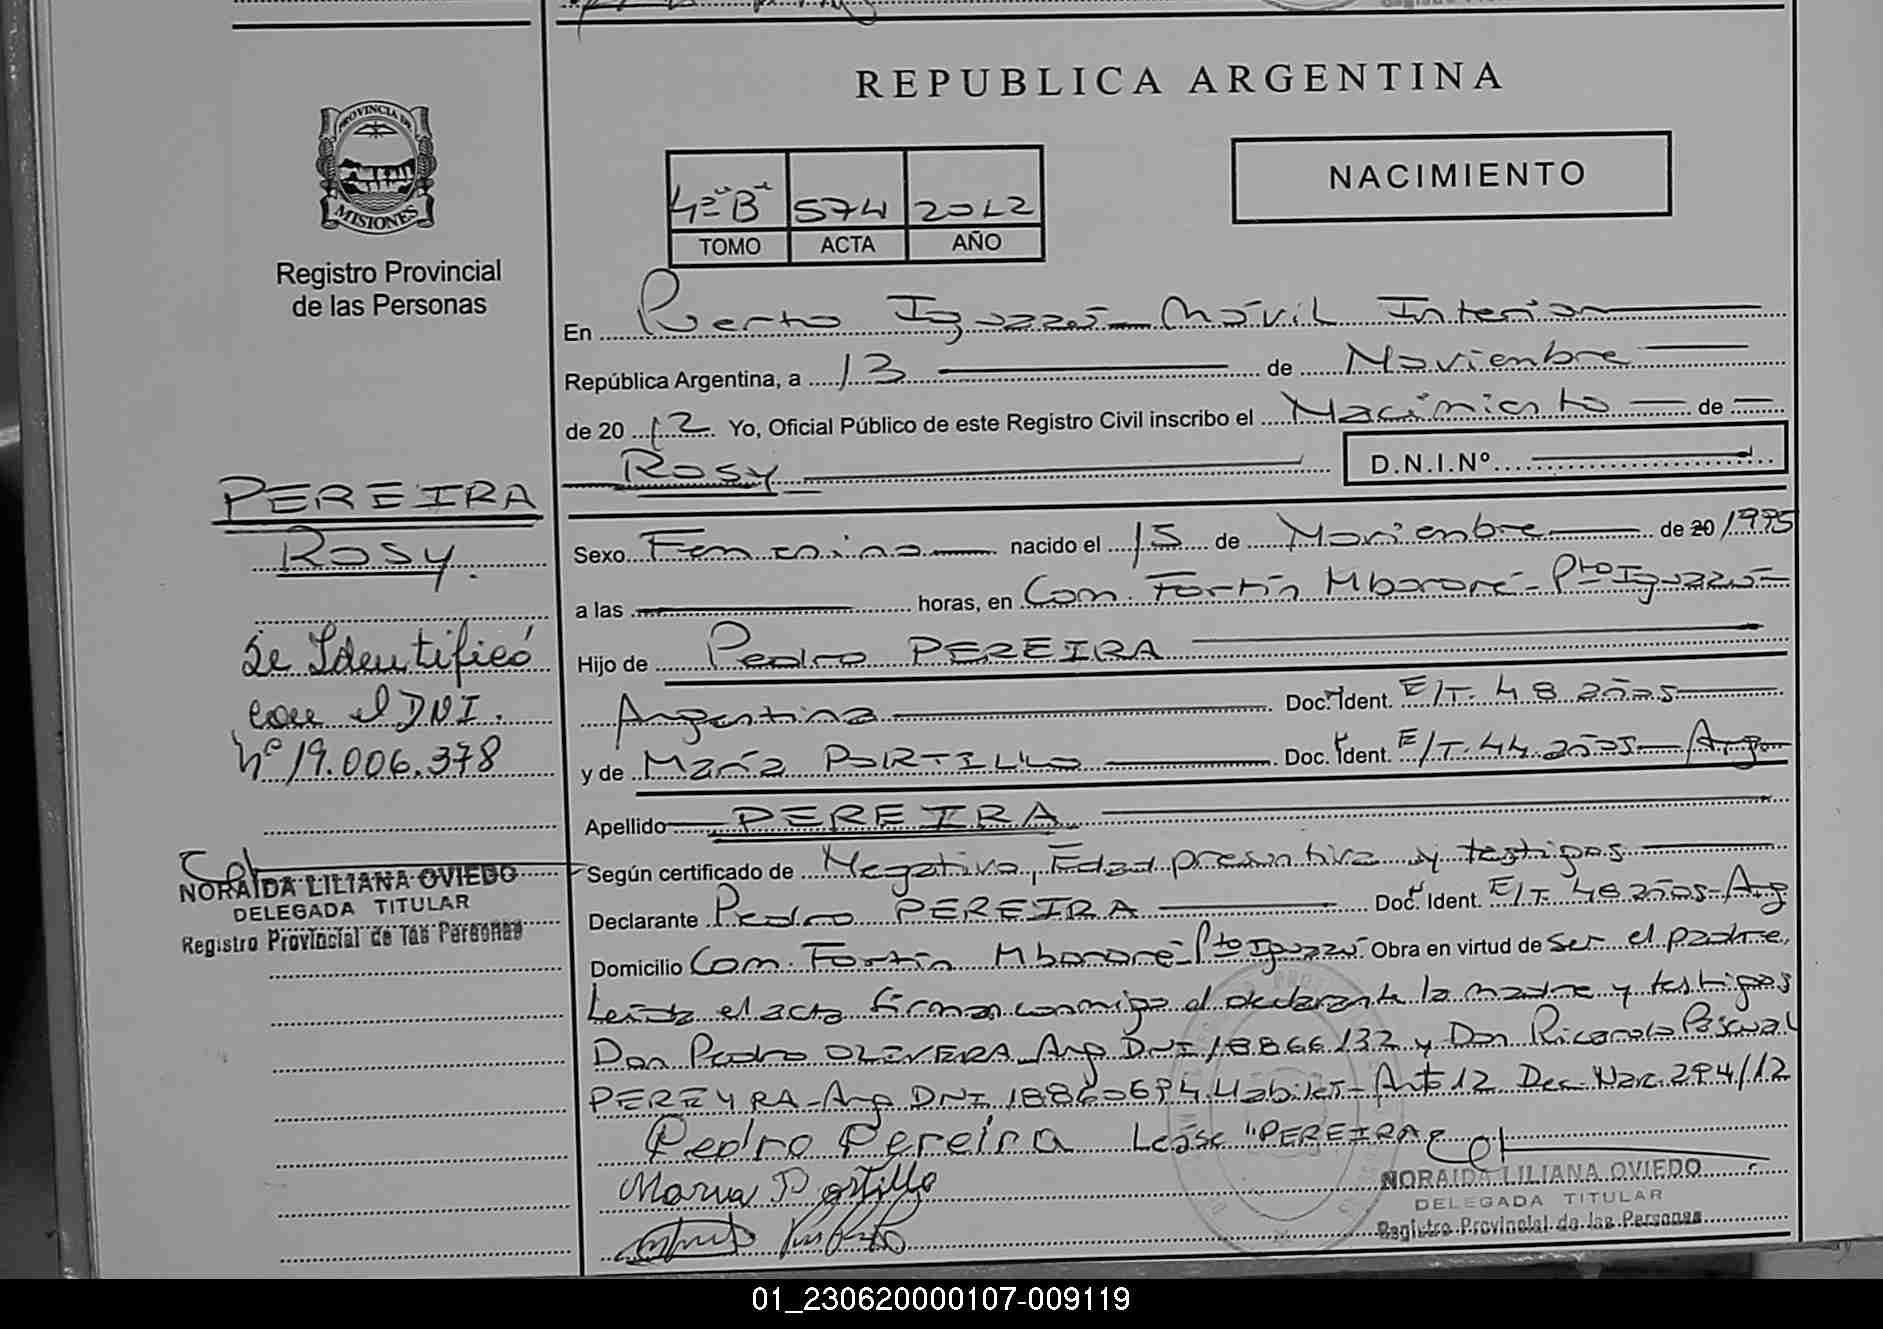 REPUBLICA ARGENTINA
PROVINCIA DE
MISIONES
Registro Provincial
de las Personas
NACIMIENTO
4º "B" 574 2012
TOMO ACTA AÑO
En Puerto Iguazú - Móvil Interior
República Argentina, a 13 de Noviembre
de 20 12 Yo, Oficial Público de este Registro Civil inscribo el Nacimiento de
Rosy D.N.I.Nº
PEREIRA
Rosy.
Se Identificó
con el DNI.
Nº 19.006.378
NORAIDA LILIANA OVIEDO
DELEGADA TITULAR
Registro Provincial de las Personas
Sexo Femenino nacido el 15 de Noviembre de 20 1995
a las horas, en Com. Fortín Mbororé - Pto Iguazú
Hijo de Pedro PEREIRA
Argentina Doc. Ident. E/T. 48 años
y de María PORTILLO Doc. Ident. E/T. 44 años - Arg
Apellido PEREIRA
Según certificado de Negativa, Edad presuntiva y testigos
Declarante Pedro PEREIRA Doc. Ident. E/T. 48 años - Arg
Domicilio Com. Fortín Mbororé - Pto Iguazú Obra en virtud de ser el padre,
Leída el acta firman conmigo el declarante la madre y testigos
Don Pedro OLIVERA Arg DNI 18866132 y Don Ricardo Pascual
PEREYRA - Arg DNI 18860694 Habiles - Art 12 Dec. Nac. 294/12
Pedro Pereira Léase "PEREIRA"
Maria Portillo
NORAIDA LILIANA OVIEDO
DELEGADA TITULAR
Registro Provincial de las Personas
01_230620000107-009119